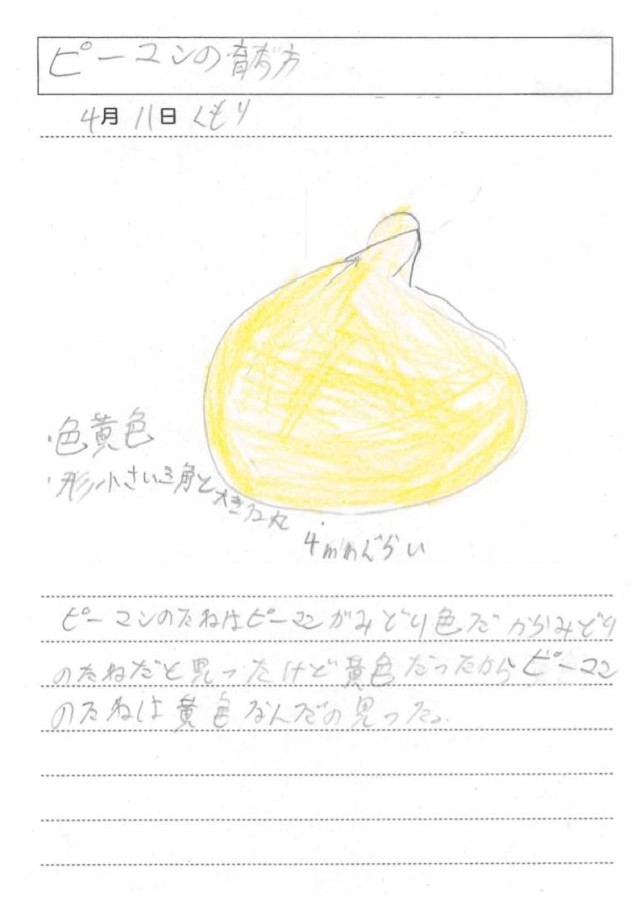 ピーマンの育ぎ方
4月11日くもり
・色黄色
・形小さい三角と大きな丸
4mmぐらい
ピーマンのたねはピーマンがみどり色だからみどり
のたねだと思ったけど黄色だったからピーマン
のたねは黄色なんだの思った。